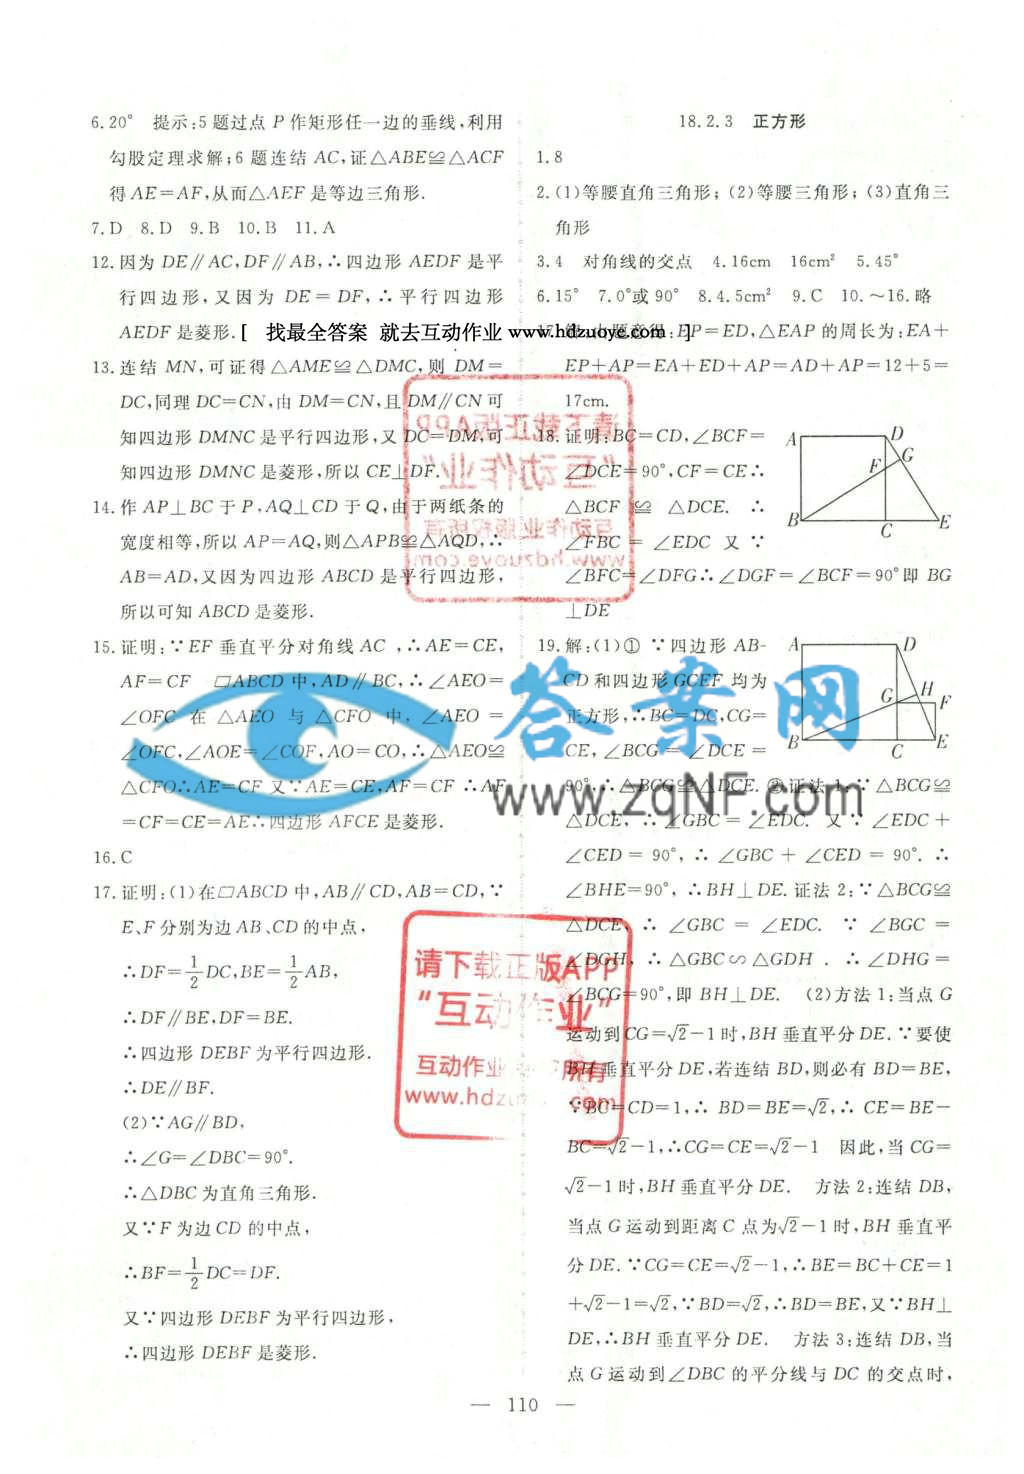 6.20° 提示:5题过点 P 作矩形任一边的垂线,利用
勾股定理求解;6题连结 AC,证△ABE≌△ACF
得 AE=AF,从而△AEF 是等边三角形.
7.D 8.D 9.B 10.B 11.A
12.因为 DE∥AC,DF∥AB,∴四边形 AEDF 是平
行四边形,又因为 DE=DF,∴平行四边形
AEDF 是菱形.[ 找最全答案 就去互动作业 www.hdzuoye.com ]
13.连结 MN,可证得△AME≌△DMC,则 DM=
DC,同理 DC=CN,由 DM=CN,且 DM∥CN 可
知四边形 DMNC 是平行四边形,又 DC=DM,可
知四边形 DMNC 是菱形,所以 CE⊥DF.
14.作 AP⊥BC 于 P,AQ⊥CD 于 Q,由于两纸条的
宽度相等,所以 AP=AQ,则△APB≌△AQD,∴
AB=AD,又因为四边形 ABCD 是平行四边形,
所以可知 ABCD 是菱形.
15.证明:∵EF 垂直平分对角线 AC ,∴AE=CE,
AF=CF ▱ABCD 中,AD∥BC,∴∠AEO=
∠OFC 在 △AEO 与 △CFO 中,∠AEO=
∠OFC,∠AOE=∠COF,AO=CO,∴△AEO≌
△CFO∴AE=CF 又∵AE=CE,AF=CF ∴AF
=CF=CE=AE∴四边形 AFCE 是菱形.
16.C
17.证明:(1)在▱ABCD 中,AB∥CD,AB=CD,∵
E、F 分别为边 AB、CD 的中点,
∴DF=1/2DC,BE=1/2AB,
∴DF∥BE,DF=BE.
∴四边形 DEBF 为平行四边形.
∴DE∥BF.
(2)∵AG∥BD,
∴∠G=∠DBC=90°.
∴△DBC 为直角三角形.
又∵F 为边 CD 的中点,
∴BF=1/2DC=DF.
又∵四边形 DEBF 为平行四边形,
∴四边形 DEBF 是菱形.
18.2.3 正方形
1.8
2.(1)等腰直角三角形;(2)等腰三角形;(3)直角三
角形
3.4 对角线的交点 4.16cm 16cm² 5.45°
6.15° 7.0°或 90° 8.4.5cm² 9.C 10.～16.略
17.解:由题意得:EP=ED,△EAP 的周长为:EA+
EP+AP=EA+ED+AP=AD+AP=12+5=
17cm.
18.证明:BC=CD,∠BCF=
∠DCE=90°,CF=CE∴
△BCF ≌ △DCE. ∴
∠FBC = ∠EDC 又 ∵
∠BFC=∠DFG∴∠DGF=∠BCF=90°即 BG
⊥DE
A D F G B C E
19.解:(1)① ∵四边形 AB-
CD 和四边形 GCEF 均为
正方形,∴BC=DC,CG=
CE,∠BCG=∠DCE=
90°.∴△BCG≌△DCE. ②证法 1:∵△BCG≌
△DCE,∴∠GBC=∠EDC. 又∵∠EDC+
∠CED = 90°, ∴ ∠GBC + ∠CED = 90°. ∴
∠BHE=90°,∴BH⊥DE.证法 2:∵△BCG≌
△DCE,∴ ∠GBC = ∠EDC. ∵ ∠BGC =
∠DGH,∴△GBC∽△GDH . ∴∠DHG=
∠BCG=90°,即 BH⊥DE. (2)方法 1:当点 G
运动到 CG=√2-1 时,BH 垂直平分 DE.∵要使
BH 垂直平分 DE,若连结 BD,则必有 BD=BE,
∵BC=CD=1,∴ BD=BE=√2,∴ CE=BE-
BC=√2-1,∴CG=CE=√2-1 因此,当 CG=
√2-1 时,BH 垂直平分 DE. 方法 2:连结 DB,
当点 G 运动到距离 C 点为√2-1 时,BH 垂直平
分 DE.∵CG=CE=√2-1,∴BE=BC+CE=1
+√2-1=√2,∵BD=√2,∴BD=BE,又∵BH⊥
DE,∴BH 垂直平分 DE. 方法 3:连结 DB,当
点 G 运动到∠DBC 的平分线与 DC 的交点时,
A D G H F B C E
请下载正版APP
"互动作业"
互动作业 版权所有
www.hdzuoye.com
请下载正版APP
"互动作业"
互动作业 所有
www.hdz com
答案网
www.zqNF.com
— 110 —